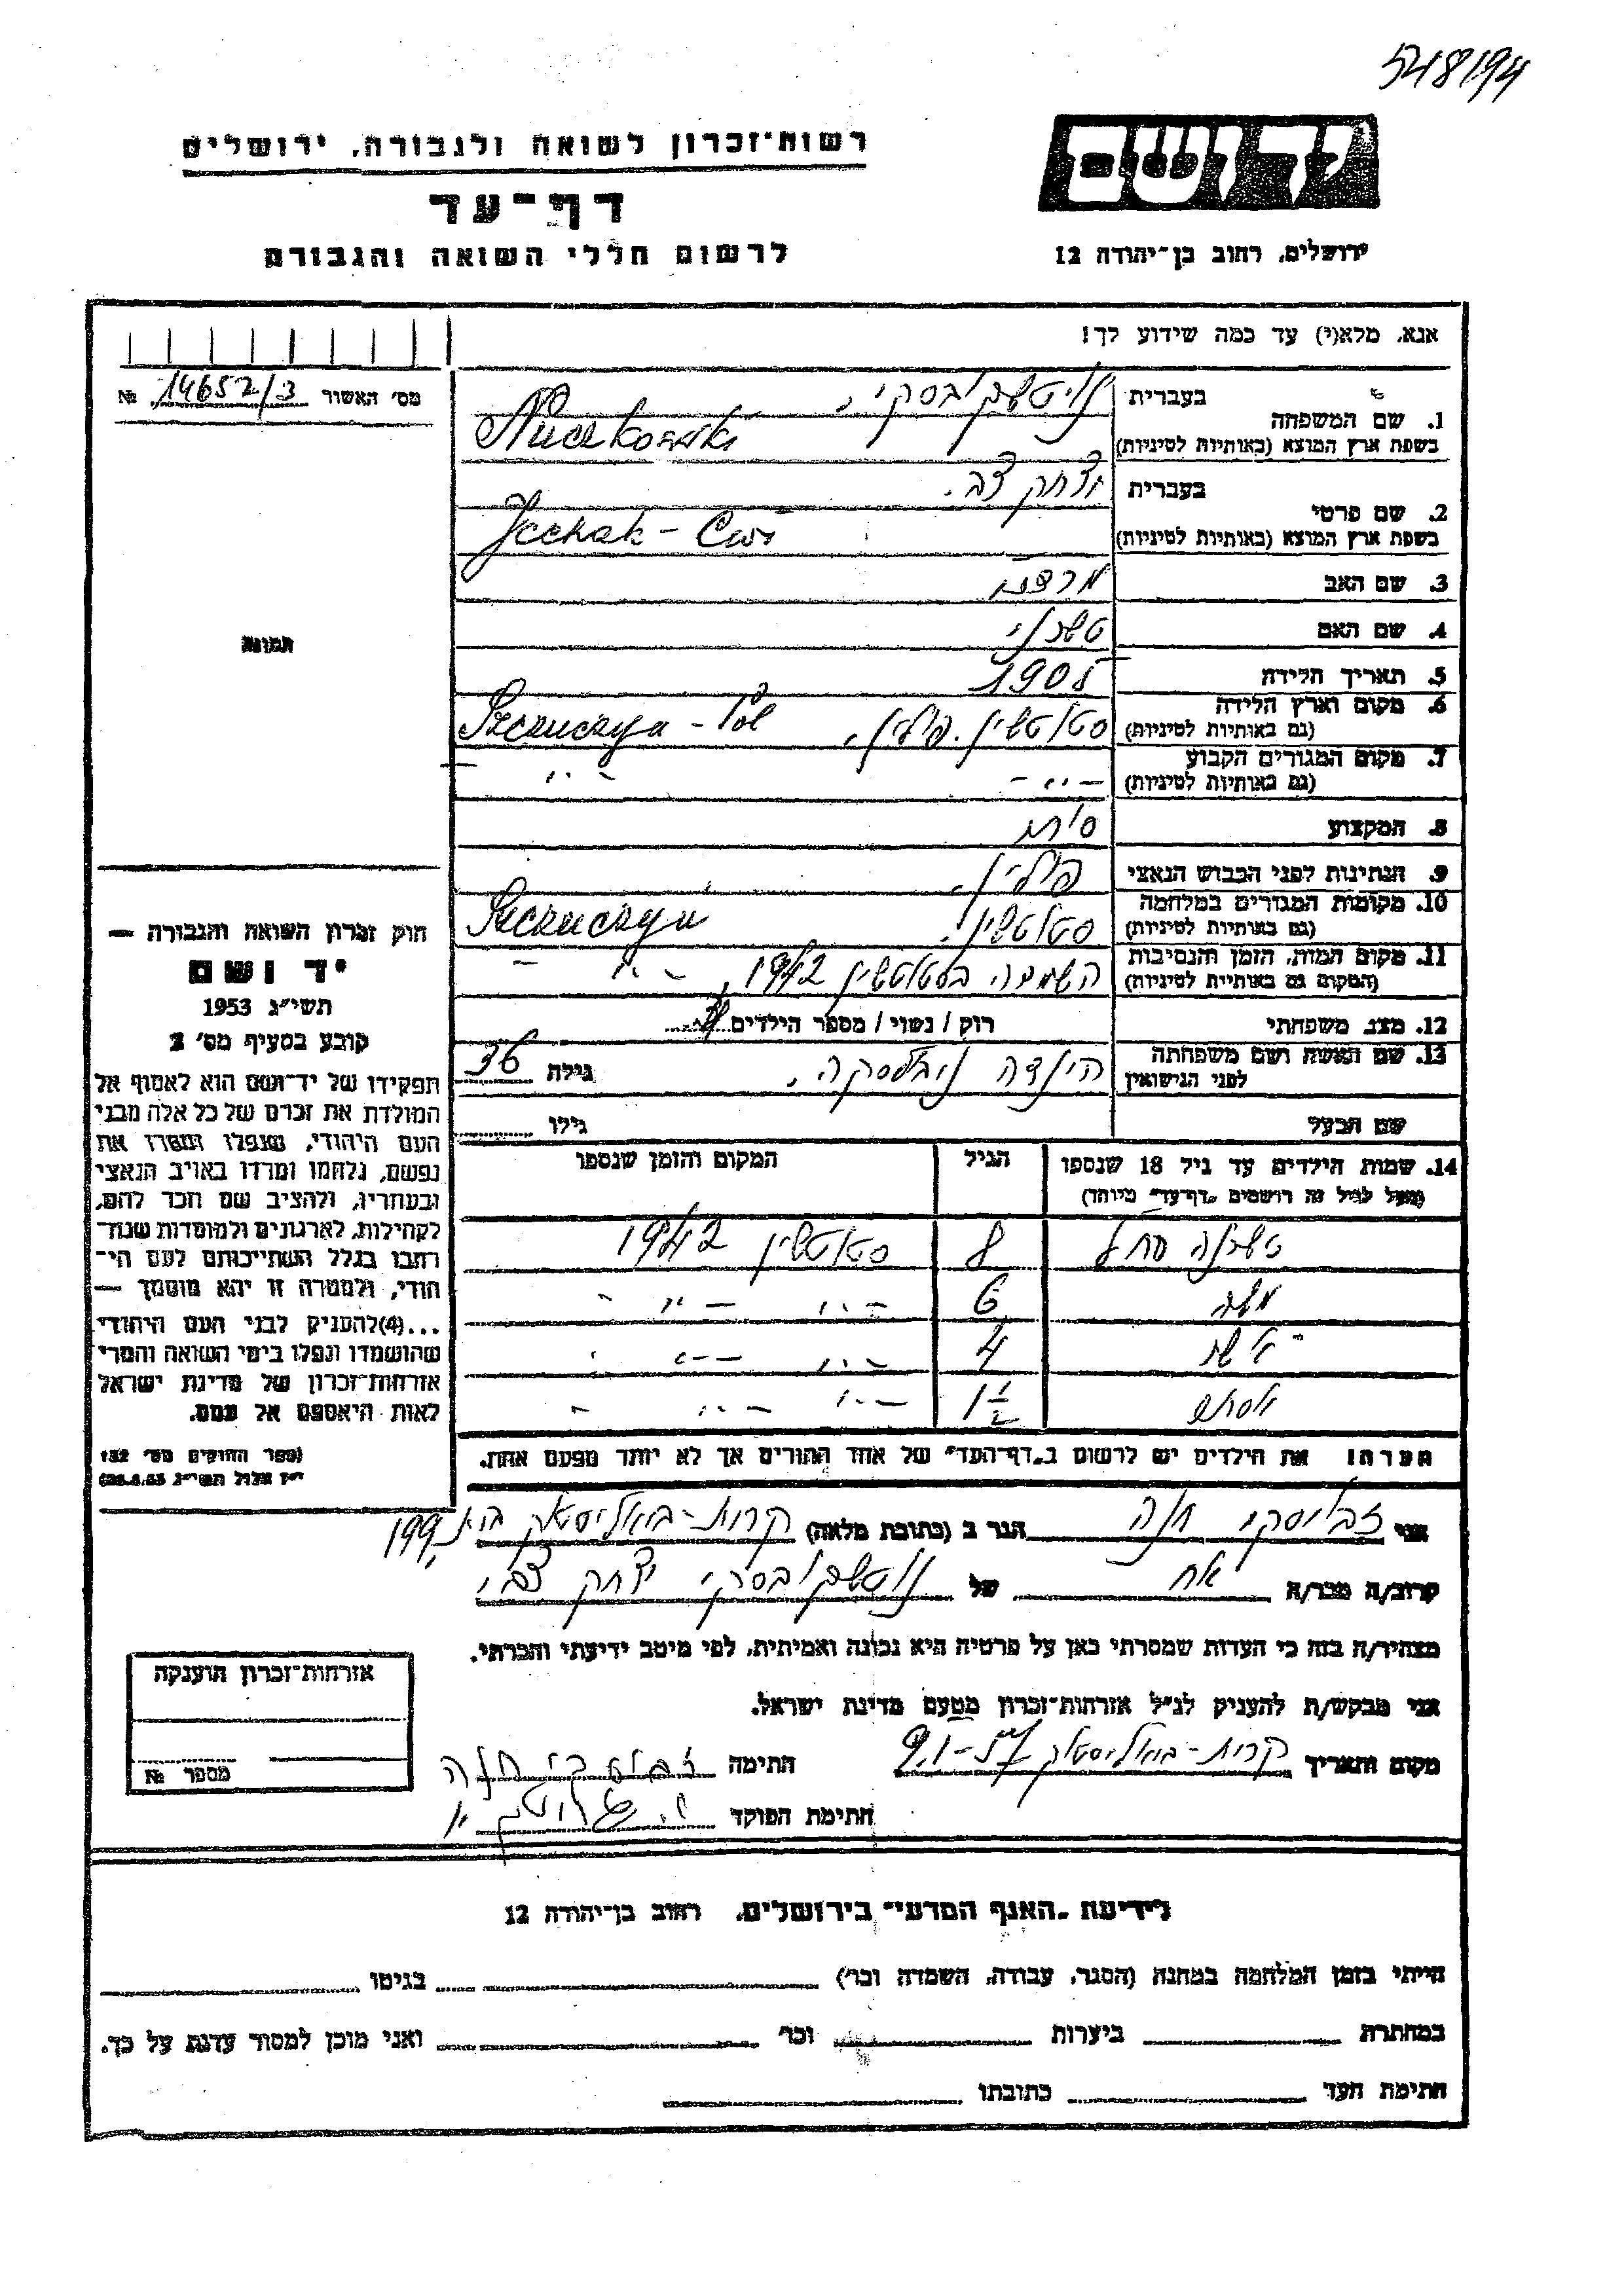 548/94
רשות־זכרון לשואה ולגבורה, ירושלים
יד ושם
דף־עד
לרשום חללי השואה והגבורה
ירושלים, רחוב בן־יהודה 12
אנא, מלא(י) עד כמה שידוע לך!
מס׳ האשור 14652/3 №
1. שם המשפחה
בעברית
בשפת ארץ המוצא (באותיות לטיניות)
2. שם פרטי
בעברית יצחק צבי
בשפת ארץ המוצא (באותיות לטיניות) Icchak - Cwi
3. שם האב
4. שם האם
5. תאריך הלידה 1905
6. מקום וארץ הלידה
(גם באותיות לטיניות) פולין, Szczuczyn - Pol
7. מקום המגורים הקבוע
(גם באותיות לטיניות) — ״ — — ״ —
8. המקצוע סוחר
9. הנתינות לפני הכבוש הנאצי פולין
10. מקומות המגורים במלחמה
(גם באותיות לטיניות) Szczuczyn
11. מקום המות, הזמן והנסיבות
(המקום גם באותיות לטיניות) השמדה 1942, — ״ —
12. מצב משפחתי רוק / נשוי / מספר הילדים
13. שם האשה ושם משפחתה
לפני הנישואין הינדה גילה 36
שם הבעל גילו
14. שמות הילדים עד גיל 18 שנספו הגיל המקום והזמן שנספו
(מעל לגיל זה רושמים „דף־עד״ מיוחד)
8 1942
משה 6 — ״ — ״ —
4 — ״ — ״ —
אסתר 1½ — ״ — ״ —
הערה! את הילדים יש לרשום ב„דף־העד״ של אחד ההורים אך לא יותר מפעם אחת.
תמונה
חוק זכרון השואה והגבורה —
יד ושם
תשי״ג 1953
קובע בסעיף מס׳ 2
תפקידו של יד־ושם הוא לאסוף אל
המולדת את זכרם של כל אלה מבני
העם היהודי, שנפלו ומסרו את
נפשם, נלחמו ומרדו באויב הנאצי
ובעוזריו, ולהציב שם וזכר להם,
לקהילות, לארגונים ולמוסדות שנח־
רבו בגלל השתייכותם לעם הי־
הודי, ולמטרה זו יהא מוסמך —
...(4)להעניק לבני העם היהודי
שהושמדו ונפלו בימי השואה והמרי
אזרחות־זכרון של מדינת ישראל
לאות היאספם אל עמם.
(ספר החוקים מס׳ 132
י״ז אלול תשי״ג 28.8.53)
אני חנה הגר ב (כתובת מלאה) קרית-ביאליסטוק בית 199
קרוב/ה מכר/ה אח של יצחק צבי
מצהיר/ה בזה כי העדות שמסרתי כאן על פרטיה היא נכונה ואמיתית, לפי מיטב ידיעתי והכרתי.
אני מבקש/ת להעניק לנ״ל אזרחות־זכרון מטעם מדינת ישראל.
מקום ותאריך קרית-ביאליסטוק 9.1-57 חתימה חנה
חתימת הפוקד
אזרחות־זכרון הוענקה
מספר №
לידיעת „האגף המדעי״ בירושלים, רחוב בן־יהודה 12
הייתי בזמן המלחמה במחנה (הסגר, עבודה, השמדה וכו׳) בגיטו
במחתרת ביערות וכו׳ ואני מוכן למסור עדות על כך.
חתימת העד כתובתו